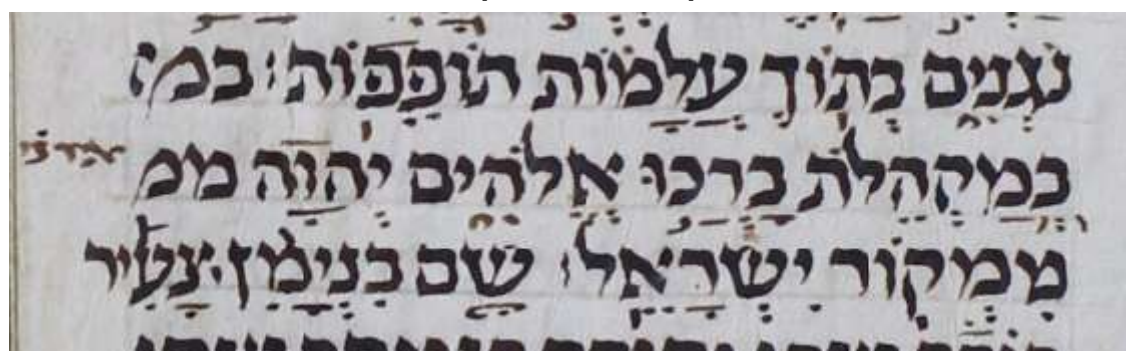 נֹגְנִים בְּתוֹךְ עֲלָמוֹת תּוֹפֵפוֹת׃ במ
בְּמַקְהֵלֹת בָּרְכוּ אֱלֹהִים יְהוָה ממ
מִמְּקוֹר יִשְׂרָאֵל׃ שָׁם בִּנְיָמִן צָעִיר